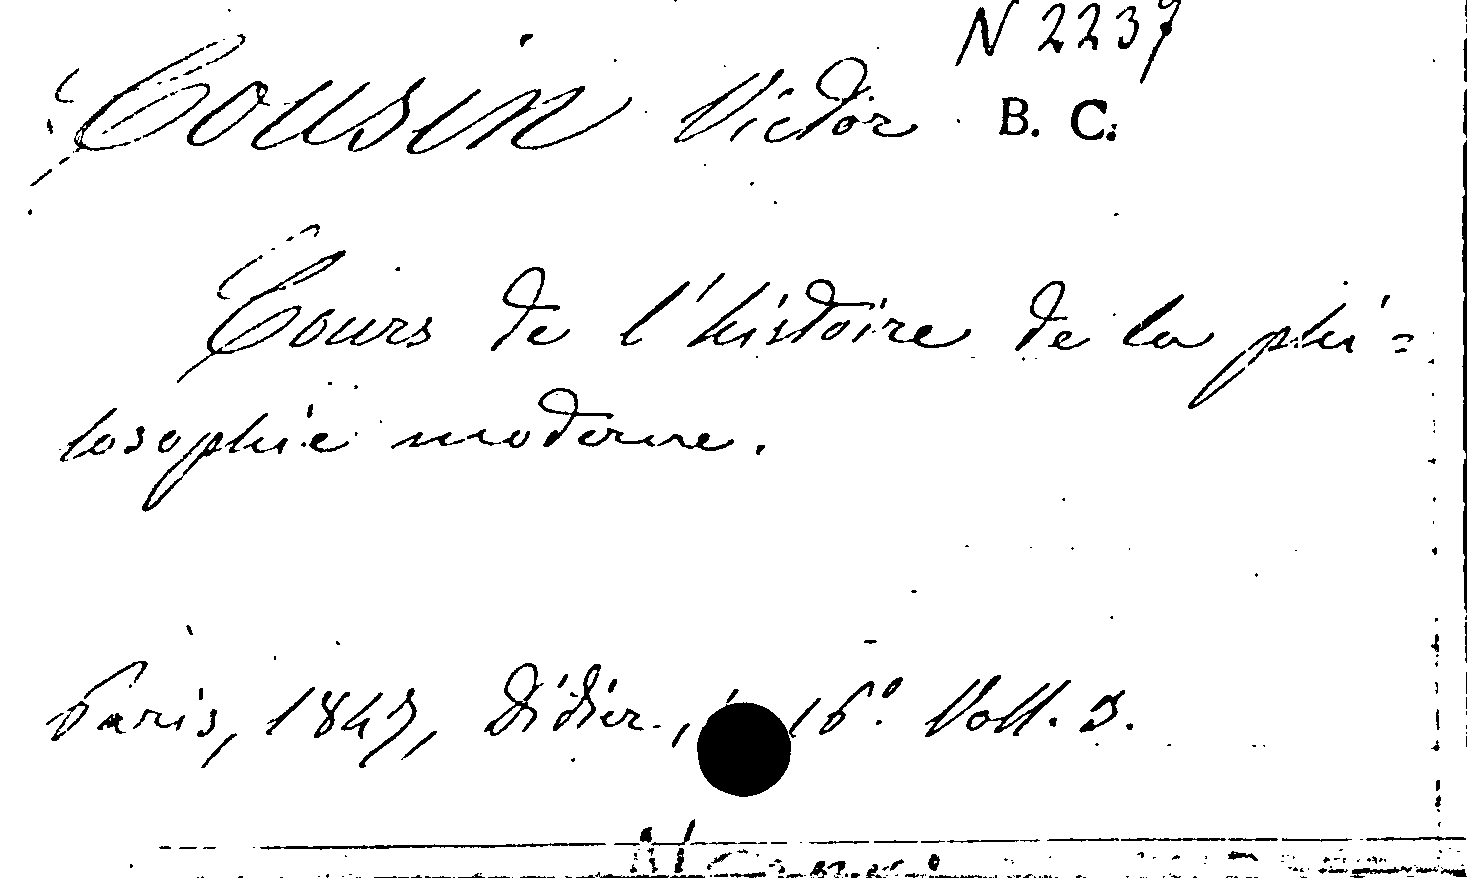 N 2237
Cousin Victor B. C.
Cours de l'histoire de la phi=
losophie moderne.
Paris, 1847, Didier, 16.° Voll. 3.